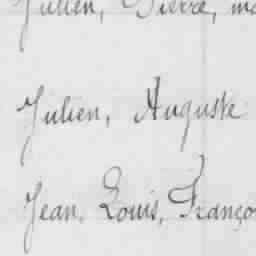 Julien, Pierre, ma
Julien, Auguste
Jean, Louis, Franço